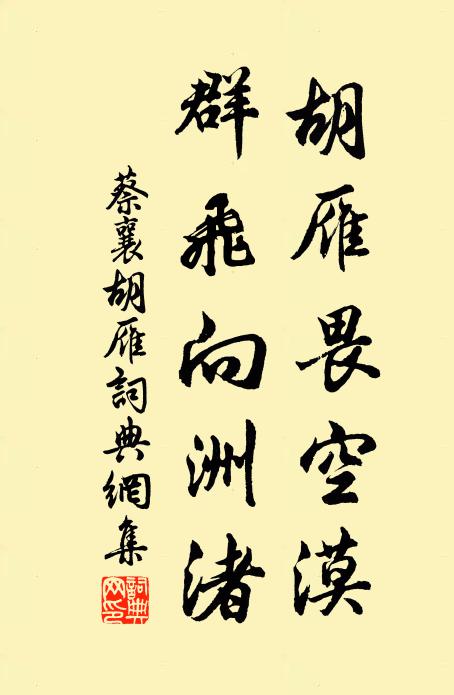 胡雁畏空漠
群飛向洲渚
蔡襄胡雁詞典網集
詞典網印